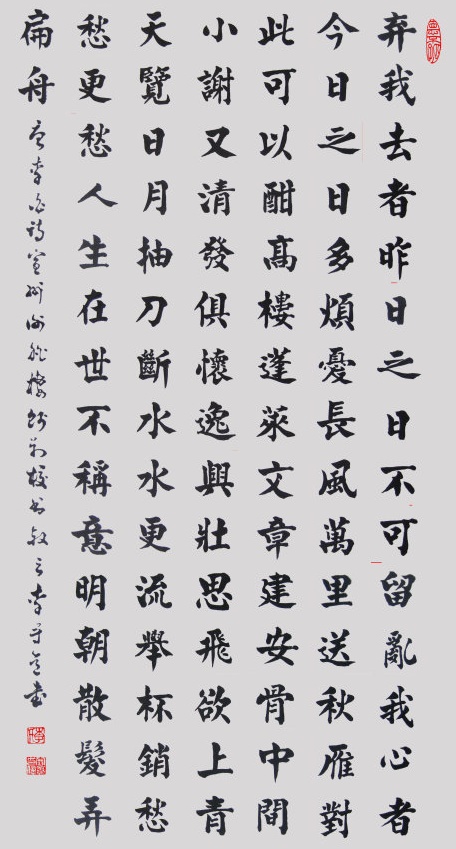 弃我去者昨日之日不可留亂我心者
今日之日多煩憂長風萬里送秋雁對
此可以酣髙樓蓬萊文章建安骨中間
小謝又清發俱懷逸興壯思飛欲上青
天覽日月抽刀斷水水更流舉杯銷愁
愁更愁人生在世不稱意明朝散髮弄
扁舟
李白詩宣州謝朓樓餞別校书叔云李守书